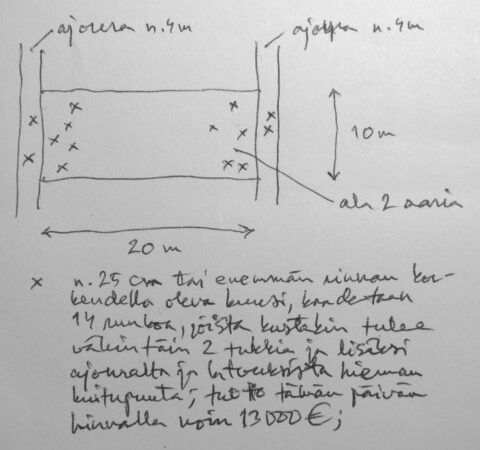 ajoura n. 4m
ajoura n. 4m
10 m
ala 2 aaria
20 m
x n. 25 cm tai enemmän rinnan kor-
keudella oleva kuusi, kaadetaan
14 runkoa, joista kustakin tulee
vähintäin 2 tukkia ja lisäksi
ajouralta ja hieman
kuitupuuta; tämän päivän
hinnalla noin 13000 €;